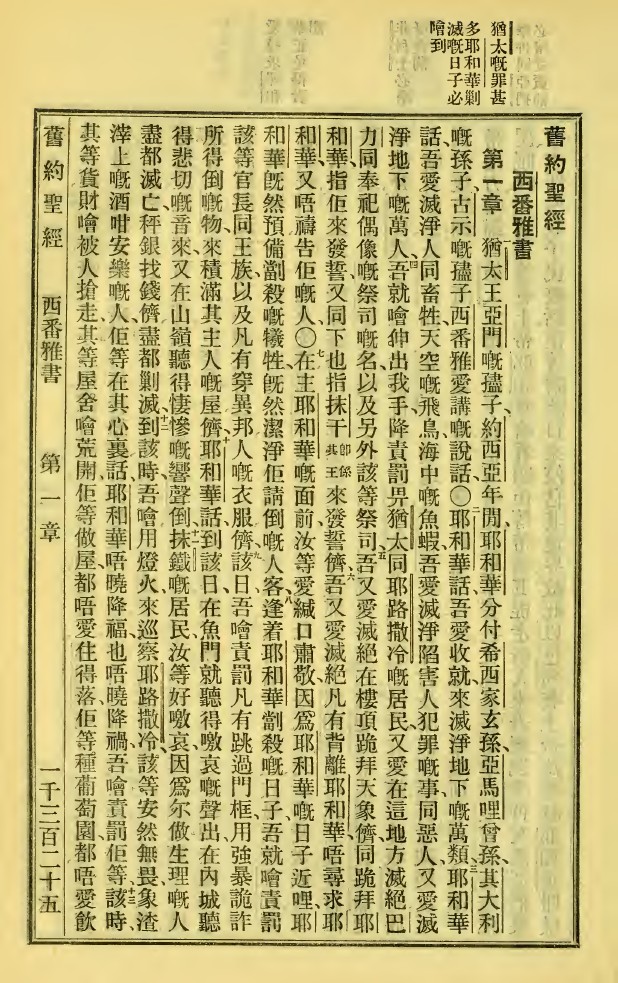 猶太嘅罪甚
多耶和華剿
滅嘅日子必
噲到
舊約聖經
西番雅書
第一章 一猶太王亞門嘅孻子、約西亞年閒、耶和華分付希西家玄孫、亞馬哩曾孫、其大利
嘅孫子、古示嘅孻子西番雅愛講嘅說話〇二耶和華話、吾愛收就來滅淨地下嘅萬類、三耶和華
話、吾愛滅淨人同畜牲、天空嘅飛鳥、海中嘅魚蝦、吾愛滅淨陷害人犯罪嘅事、同惡人、又愛滅
淨地下嘅萬人、四吾就噲伸出我手、降責罰畀猶太同耶路撒冷嘅居民、又愛在這地方滅絕巴
力、同奉祀偶像嘅祭司嘅名、以及另外該等祭司、五吾又愛滅絕在樓項跪拜天象、儕同跪拜耶
和華、指佢來發誓、又同下也指抹干卽係其王來發誓儕、六吾又愛滅絕凡有背離耶和華、唔尋求耶
和華、又唔禱告佢嘅人、〇七在主耶和華嘅面前、汝等愛緘口肅敬、因爲耶和華嘅日子近哩、耶
和華旣然預備劏殺嘅犧牲、旣然潔淨佢請倒嘅人客、八逢着耶和華劏殺嘅日子、吾就噲責罰
該等官長、同王族、以及凡有穿異邦人嘅衣服儕、九該日吾噲責罰凡有跳過門框、用強暴詭詐
所得倒嘅物來積滿其主人嘅屋儕、十耶和華話、到該日在魚門就聽得噭哀嘅聲出、在內城聽
得悲切嘅音來、又在山嶺聽得悽慘嘅響聲倒、十一抹鐵嘅居民、汝等好噭哀、因爲尔做生理嘅人
盡都滅亡、秤銀找錢儕、盡都剿滅、十二到該時吾噲用燈火來巡察耶路撒冷、該等安然無畏、象渣
滓上嘅酒咁安樂嘅人、佢等在其心裏話、耶和華唔曉降福、也唔曉降禍、吾噲責罰佢等、十三該時
其等貨財噲被人搶走、其等屋舍噲荒開、佢等做屋都唔愛住得落、佢等種葡萄園、都唔愛飲
舊約聖經 西番雅書 第一章 一千三百二十五